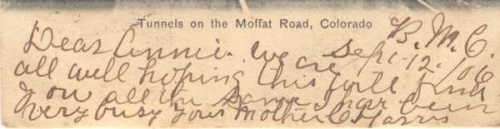 Tunnels on the Moffat Road, Colorado
B. M. C.
Dear Annie. We are Sept-12. /06
all well hoping this will find
you all the same have been
very busy your Mother C Harris